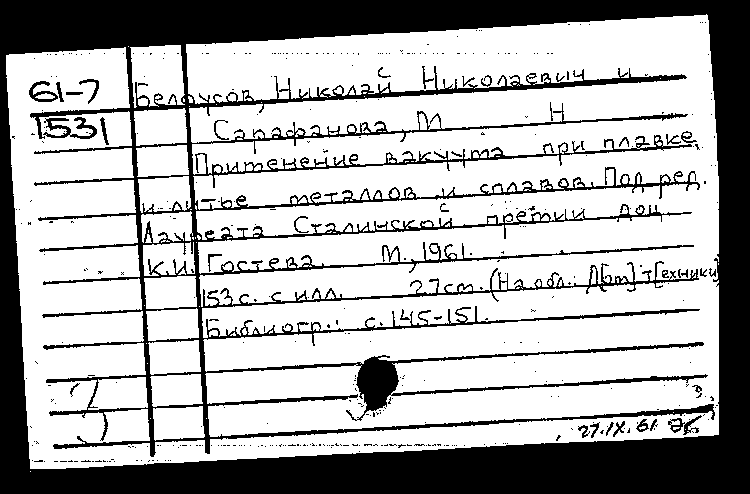 61-7
1531
Белоусов, Николай Николаевич и
Сарафанова, М Н
Применение вакуума при плавке
и литье металлов и сплавов. Под ред.
Лауреата Сталинской премии доц
К.И. Гостева. М., 1961.
153 с. с илл. 27 см. (На обл.: Д[ом] т[ехники]
Библиогр.: с. 145-151.
27.IX.61